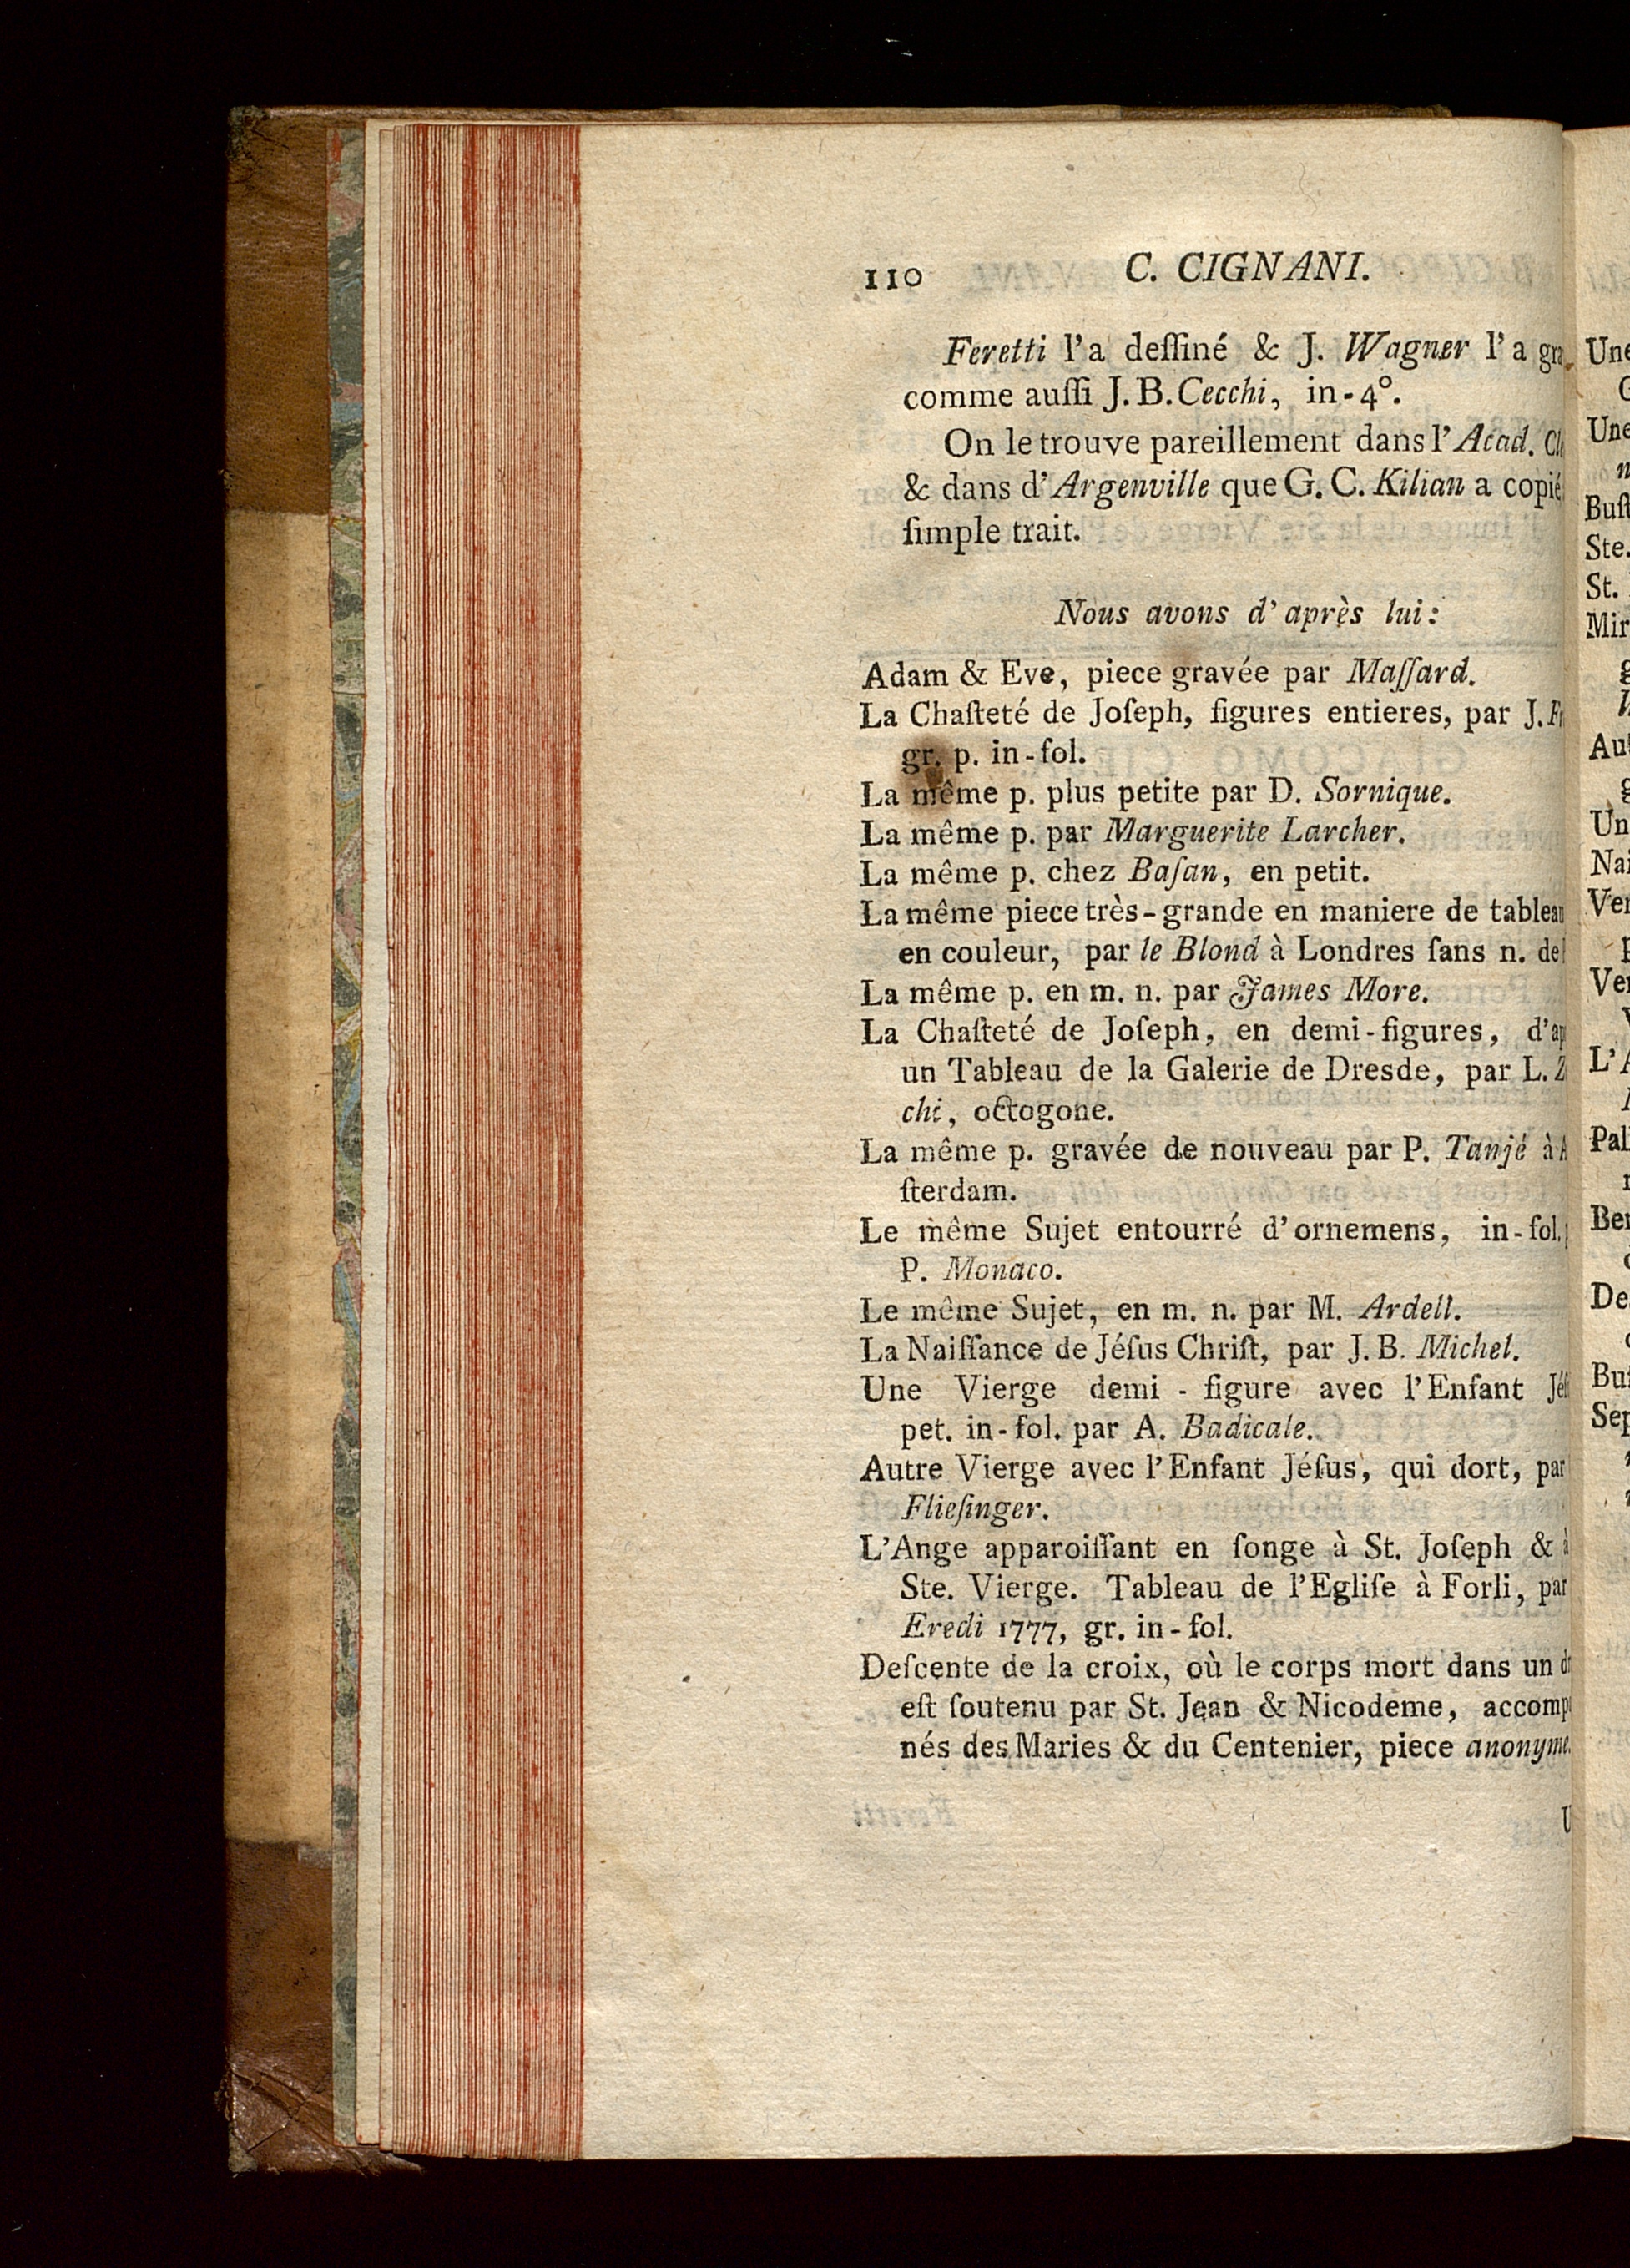 110 C. CIGNANI.
Feretti l'a deſſiné & J. Wagner l'a gra
comme auſſi J. B. Cecchi, in-4°.
On le trouve pareillement dans l'Acad. Cle
& dans d'Argenville que G. C. Kilian a copié
ſimple trait.
Nous avons d'après lui:
Adam & Eve, piece gravée par Maſſard.
La Chaſteté de Joſeph, figures entieres, par J. Fr
gr. p. in-fol.
La même p. plus petite par D. Sornique.
La même p. par Marguerite Larcher.
La même p. chez Baſan, en petit.
La même piece très-grande en maniere de tableau
en couleur, par le Blond à Londres ſans n. de
La même p. en m. n. par James More.
La Chaſteté de Joſeph, en demi-figures, d'ap
un Tableau de la Galerie de Dresde, par L. Z
chi, octogone.
La même p. gravée de nouveau par P. Tanjé à A
ſterdam.
Le même Sujet entourré d'ornemens, in-fol.
P. Monaco.
Le même Sujet, en m. n. par M. Ardell.
La Naiſſance de Jéſus Chriſt, par J. B. Michel.
Une Vierge demi-figure avec l'Enfant Jéſ
pet. in-fol. par A. Badicale.
Autre Vierge avec l'Enfant Jéſus, qui dort, par
Flieſinger.
L'Ange apparoiſſant en ſonge à St. Joſeph & à
Ste. Vierge. Tableau de l'Egliſe à Forli, par
Eredi 1777, gr. in-fol.
Deſcente de la croix, où le corps mort dans un dr
eſt ſoutenu par St. Jean & Nicodeme, accomp
nés des Maries & du Centenier, piece anonyme.
U
Une
Une
Buſt
Ste.
St.
Mir
g
Aut
g
Un
Nai
Ver
p
Ver
L'A
Pal
Ber
De
Buſ
Sep